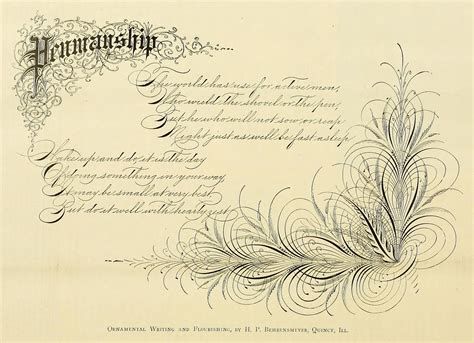 Penmanship
The world has use for active men,
Who wield the shovel or the pen,
But he who will not sow or reap
Might just as well be fast asleep.
Wake up and do, it is the day
Of doing something in your way
It may be small at very best
But do it well with hearty zest
ORNAMENTAL WRITING AND FLOURISHING, BY H. P. BEHRENSMEYER, QUINCY, ILL.